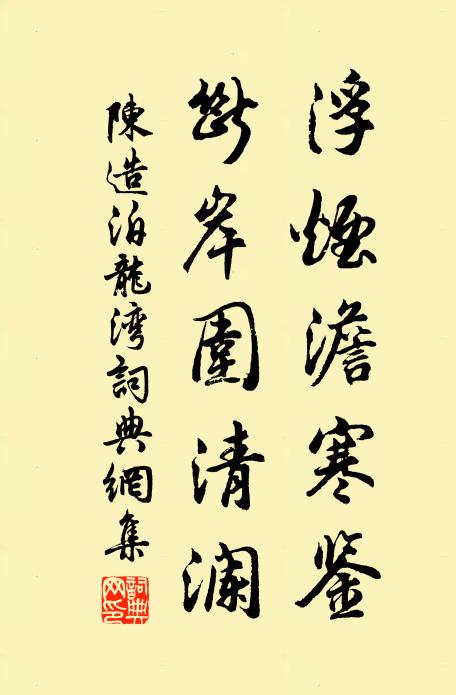 浮煙澹寒鉴
斷岸圍清澜
陳造泊龍湾詞典網集
詞典网印